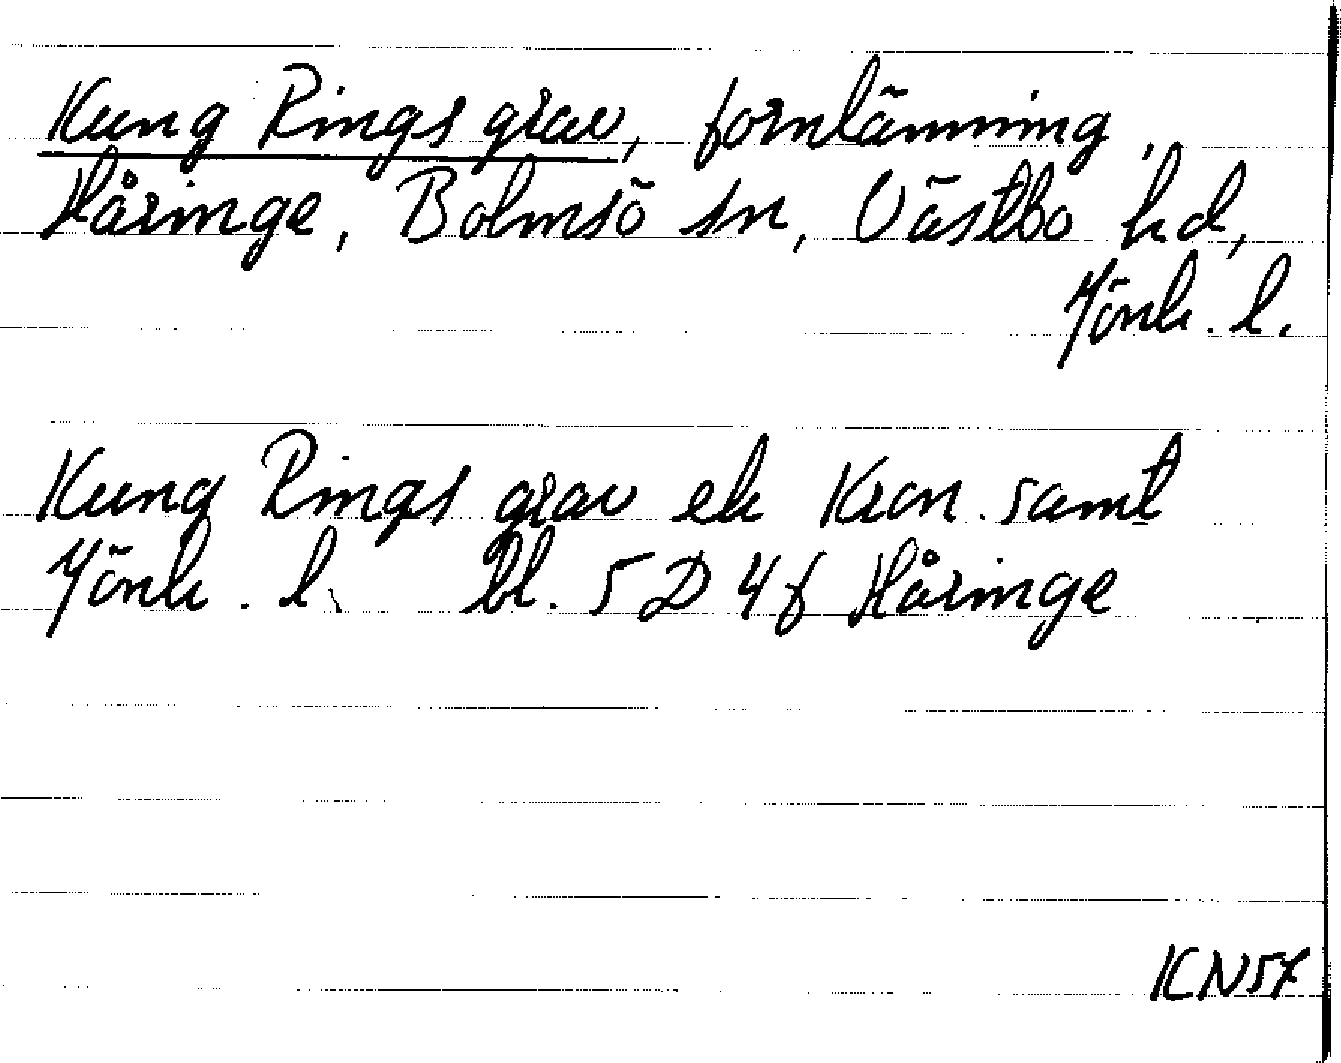 Kung Rings grav, fornlämning,
Håringe, Bolmsö sn, Västbo hd,
Jönk. l.
Kung Rings grav ek Kron. samt
Jönk. l. bl. 5D4f Håringe
KN57